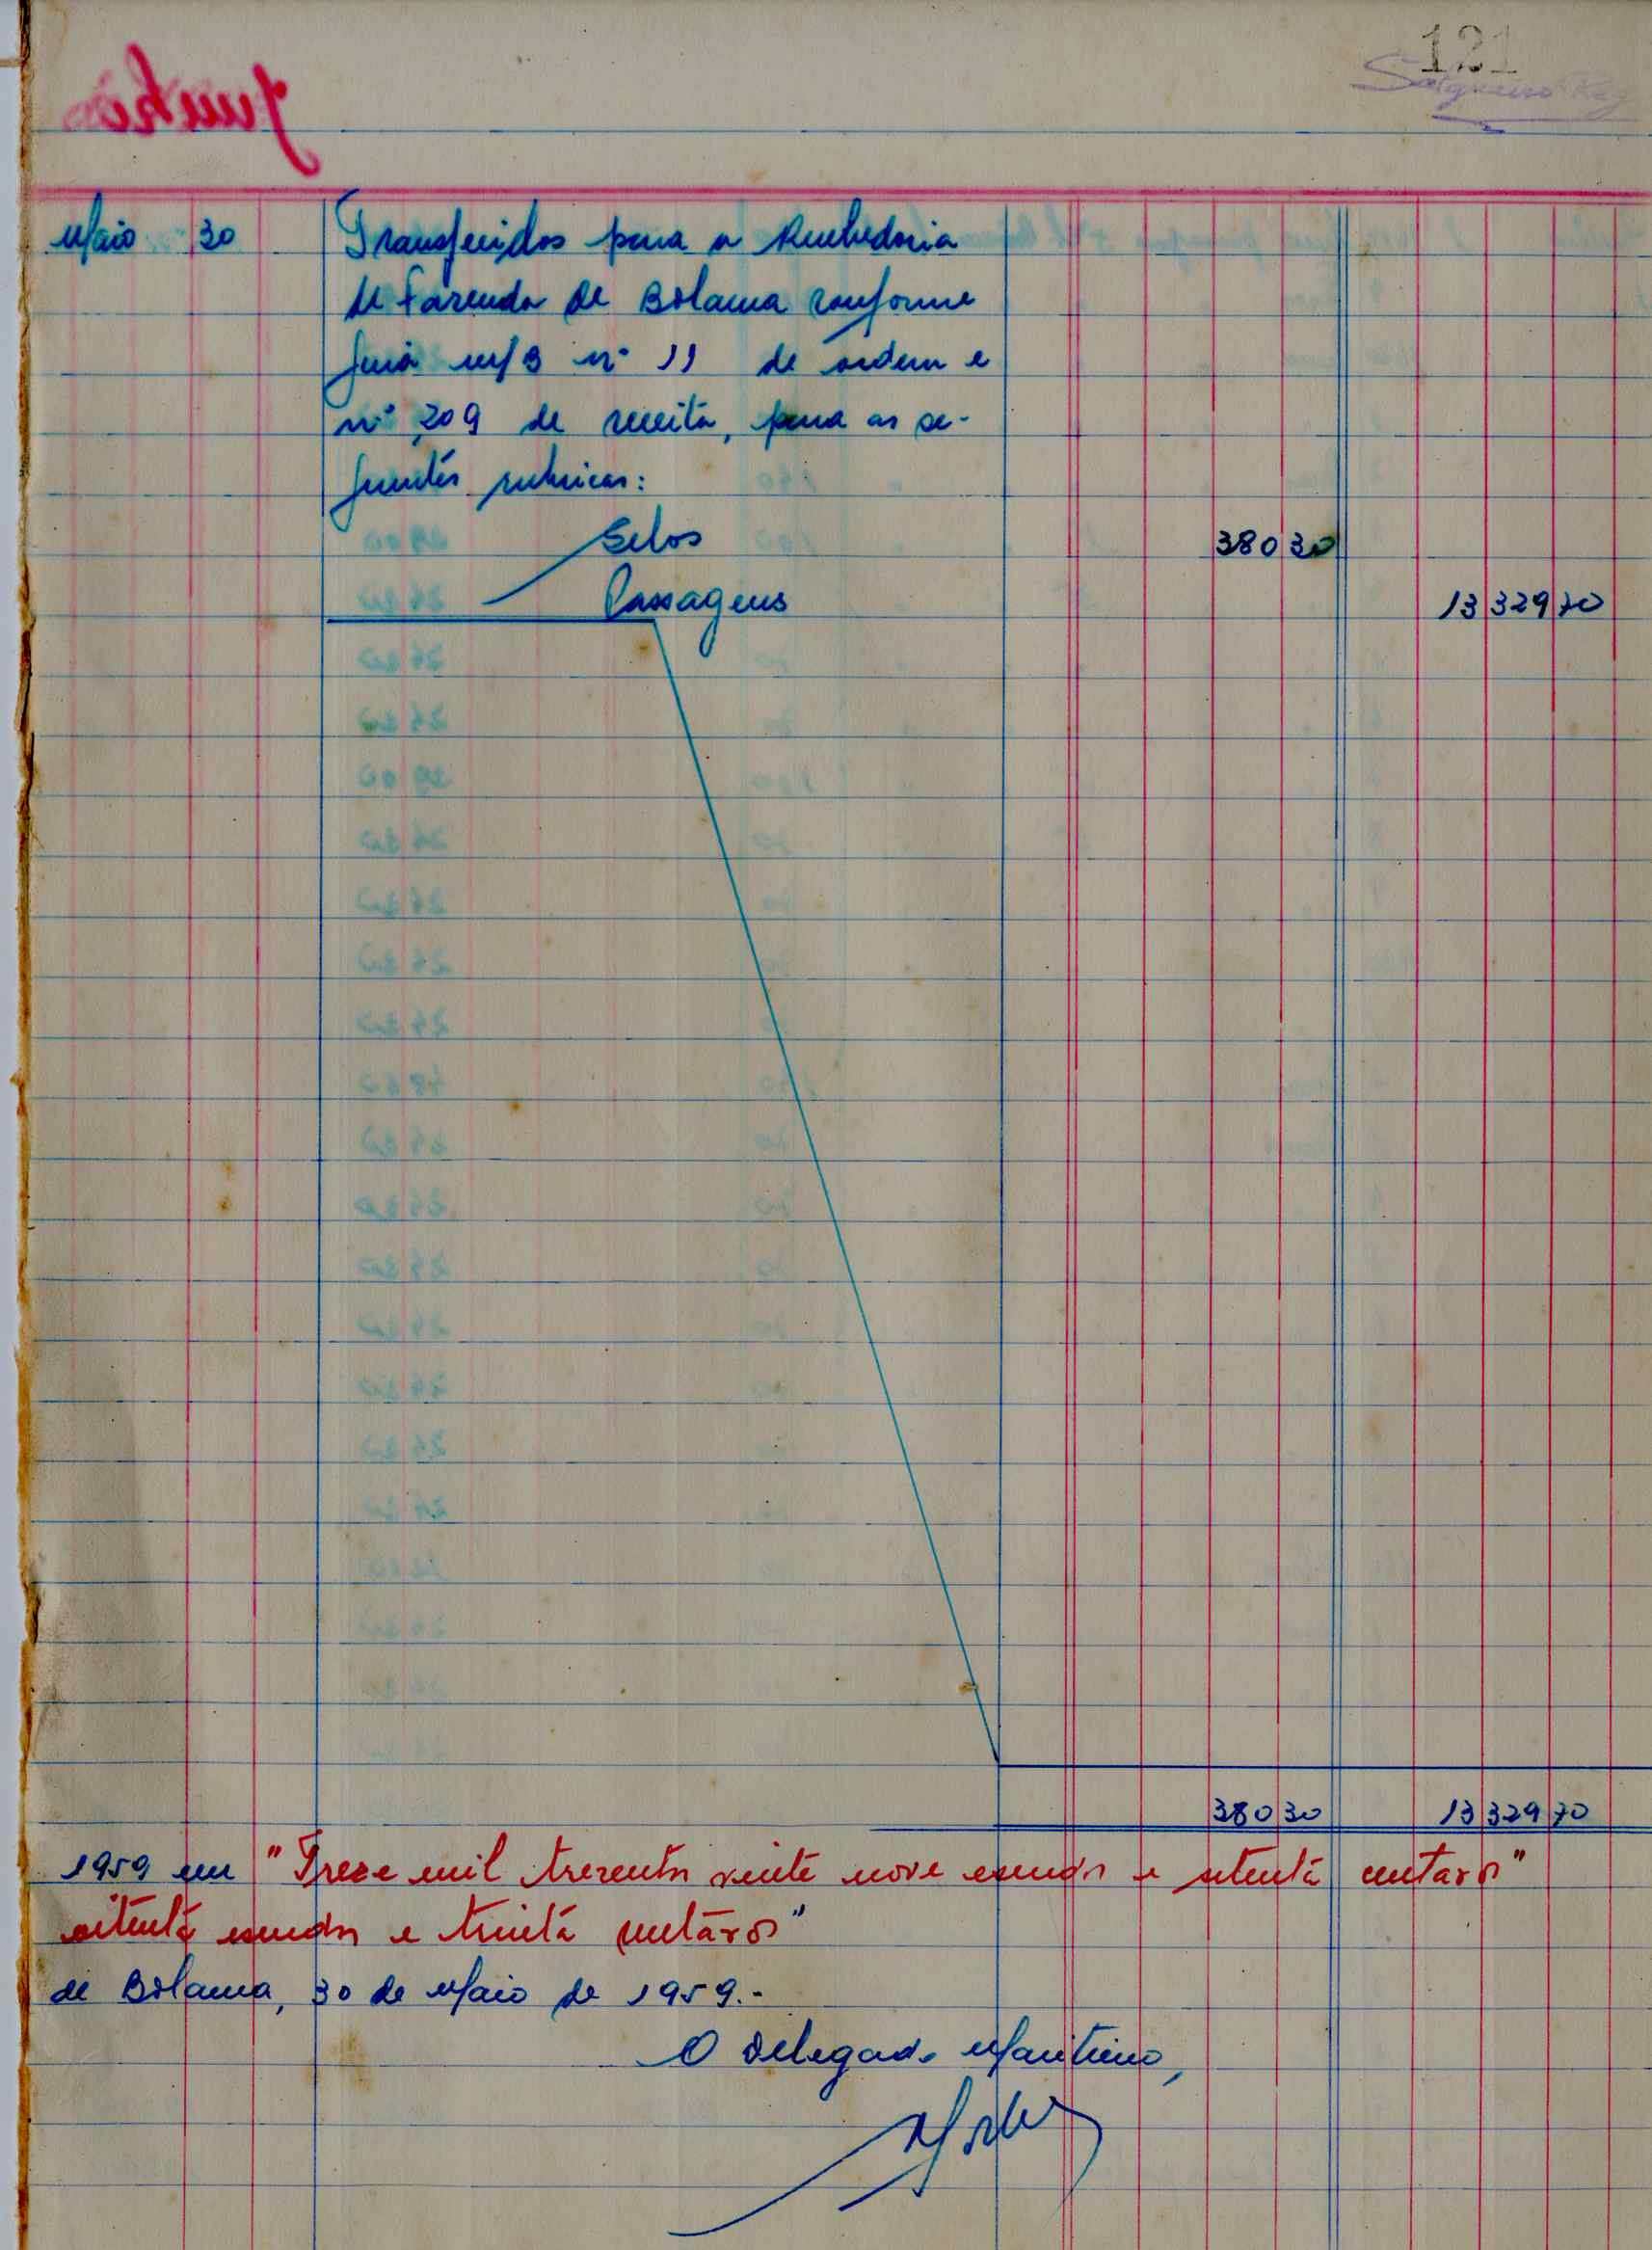 121
Salgueiro Rey
Maio 30 Transferidos para a Recebedoria
de Fazenda de Bolama conforme
guia m/B nº 11 de ordem e
nº 209 de receita, para as se-
guintes rubricas:
Selos 380 30
Passagens 13 329 70
380 30 13 329 70
1959 em "Treze mil trezentos vinte nove escudos e setenta centavos"
oitenta escudos e trinta centavos"
de Bolama, 30 de Maio de 1959.-
O Delegado Marítimo,